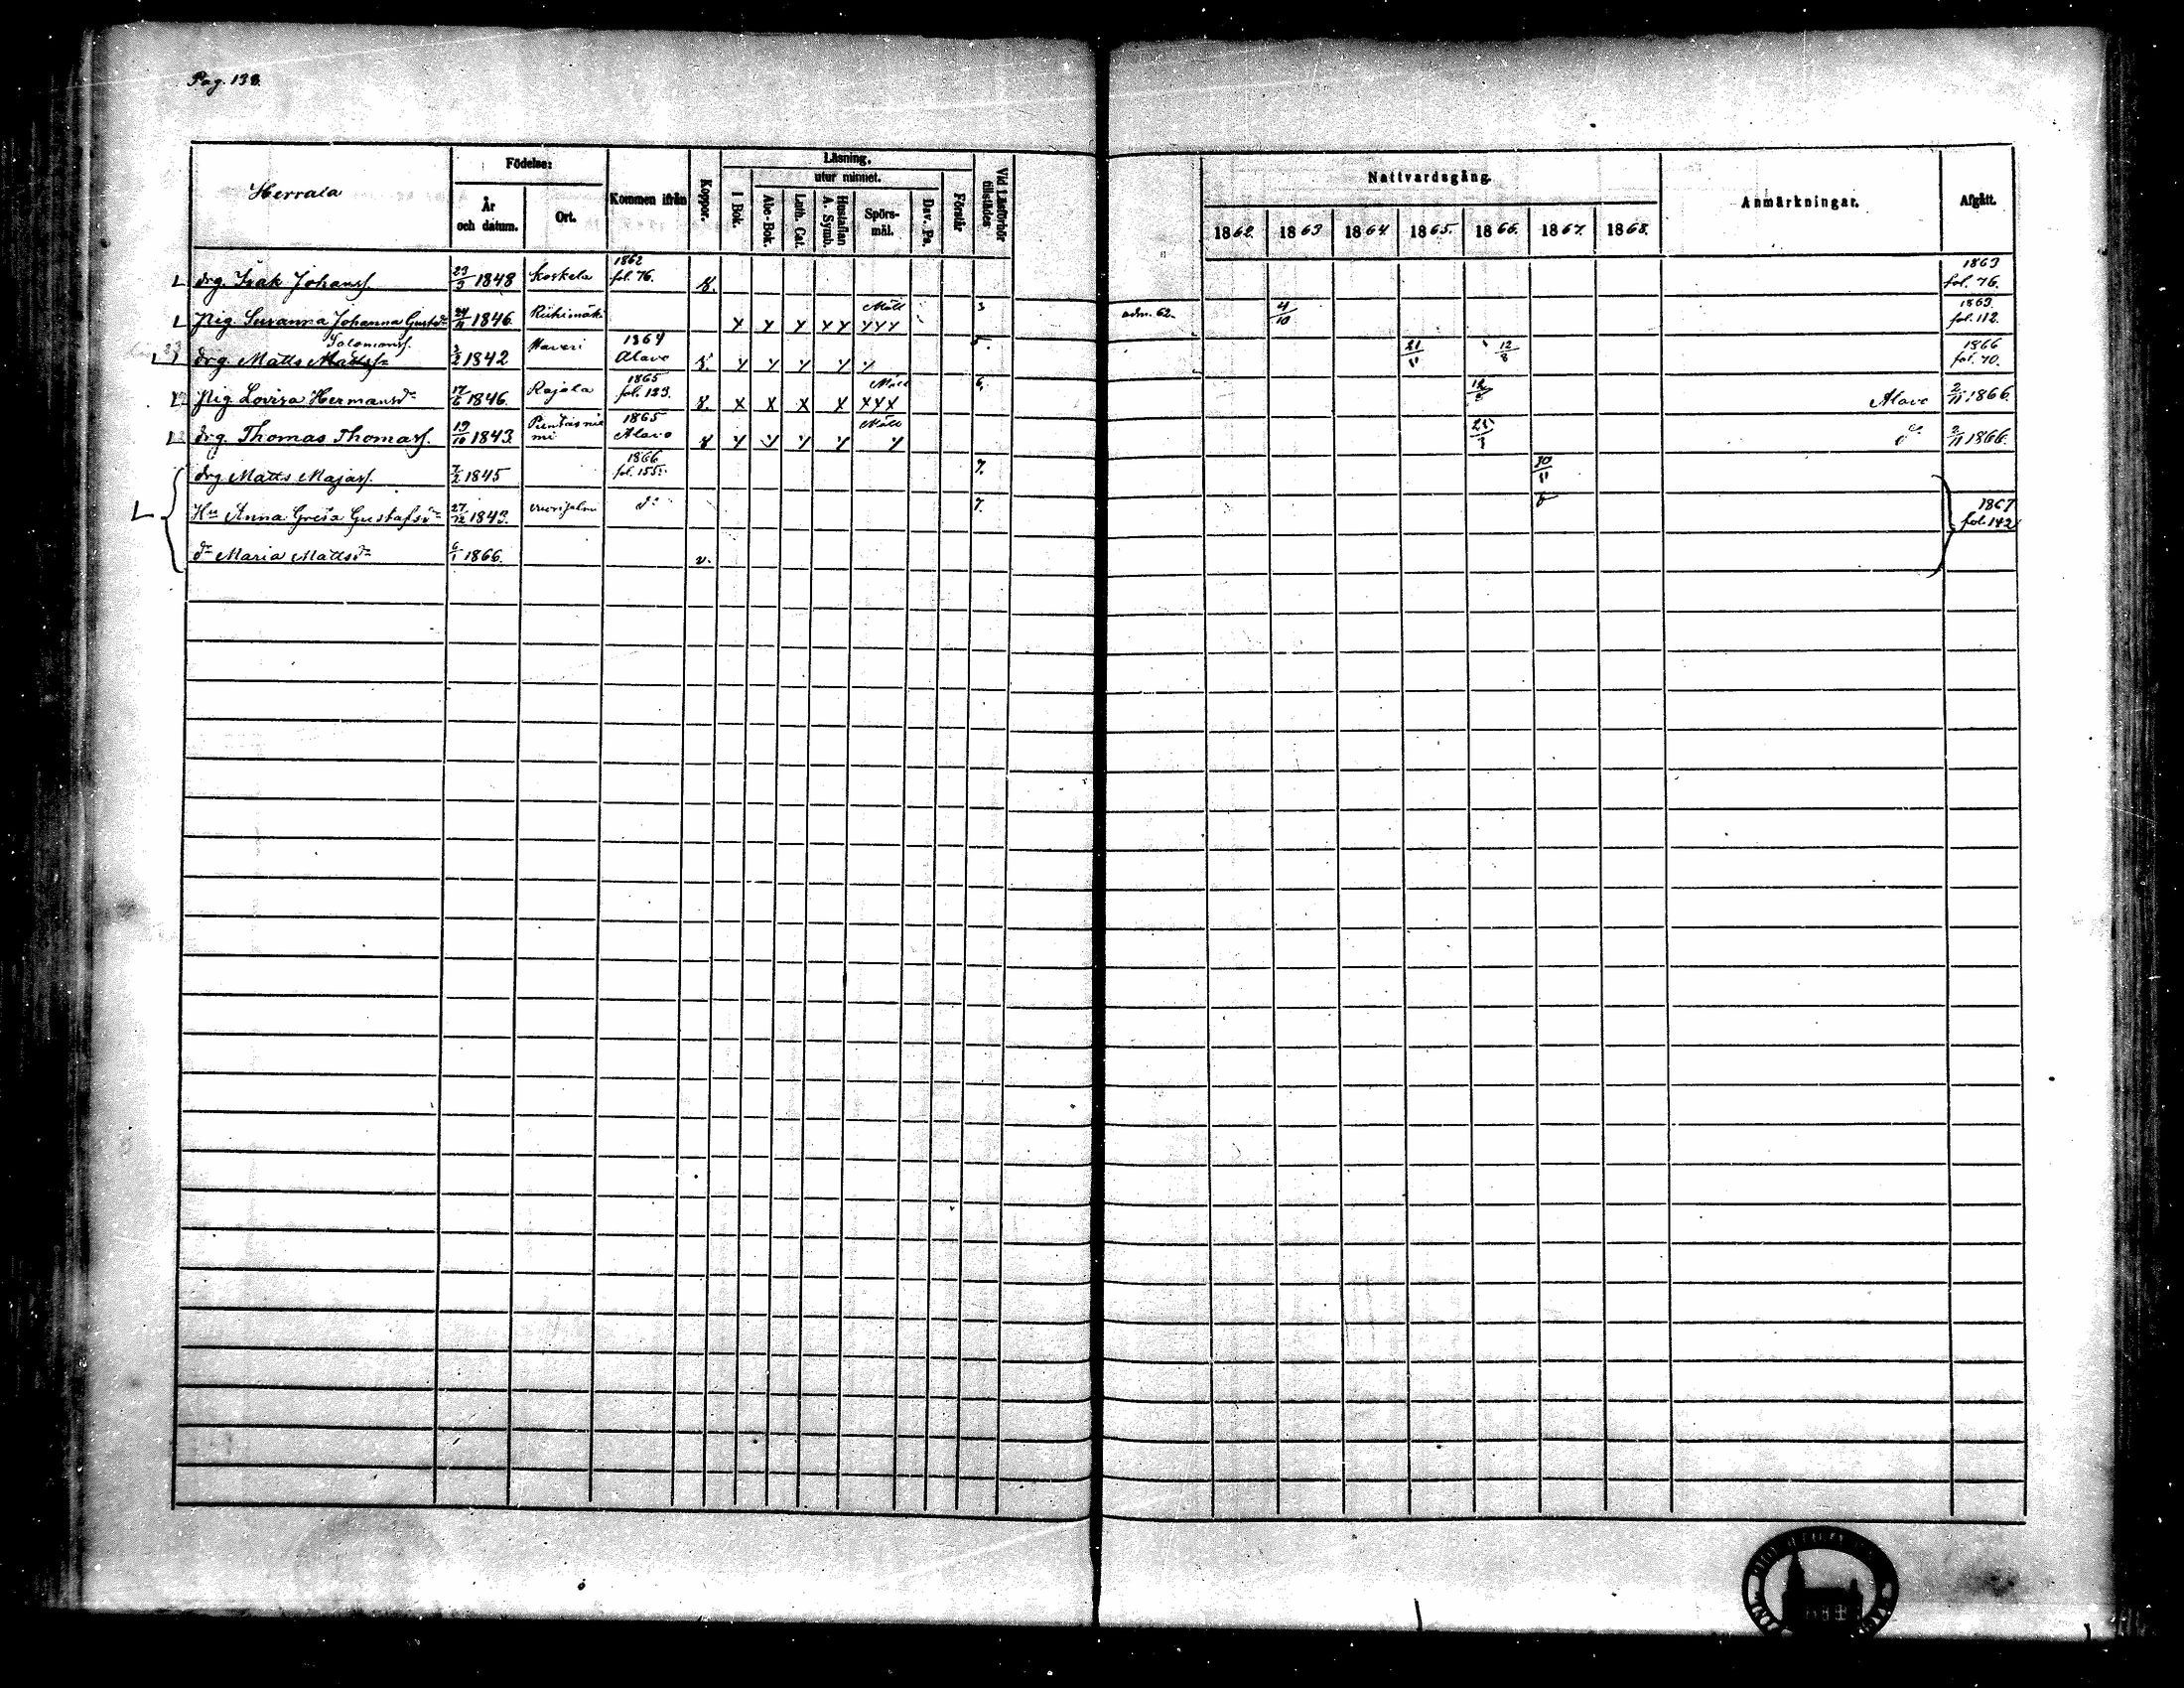 Pag. 138.
Herrala
Födelse:
År och datum.
Ort.
Kommen ifrån
Koppor.
Läsning.
I Bok.
utur minnet.
Abc-Bok.
Luth. Cat.
Hustaflan A. Symb.
Spörsmål.
Dav. Ps.
Förstår
Vid Läsförhör tillstädes
Nattvardsgång.
1862. 1863 1864 1865. 1866. 1867. 1868.
Anmärkningar.
Afgått.
L drg. Isak Johanss. 23/9 1848 Koskela 1862 fol. 76. x. 1863 fol. 76.
L Pig. Susanna Johanna Gustsdr 1846. Riihimäki x x x x x Mått x x x 3 adm. 62. 4/10 1863. fol. 112.
Salomonss.
drg. Matts Mattss. 3/2 1842 Haveri 1864 Alavo x. x x x x x 5. 21/11 12/8 1866 fol. 70.
Pig. Lovisa Hermansdr 17/6 1846. Rajala 1865 fol. 123. x. x x x x Mått x x x 6. 12/8 Alavo 2/11 1866.
drg. Thomas Thomass. 19/10 1843. Puntasniemi 1865 Alavo x x x x x Mått x 25/3 do 2/11 1866.
drg Matts Majass. 7/2 1845 1866 fol. 155. 7. 30/11
L Hu Anna Greta Gustafsdr 27/12 1843. do 7. 1867 fol. 142
dr Maria Mattsdr 6/1 1866. v.